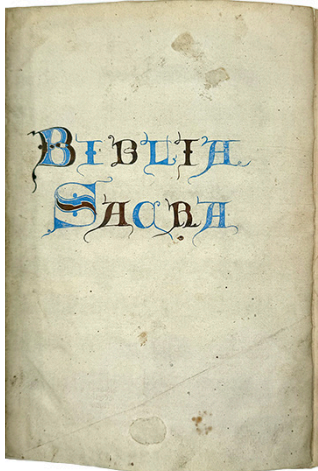 BIBLIA
SACRA